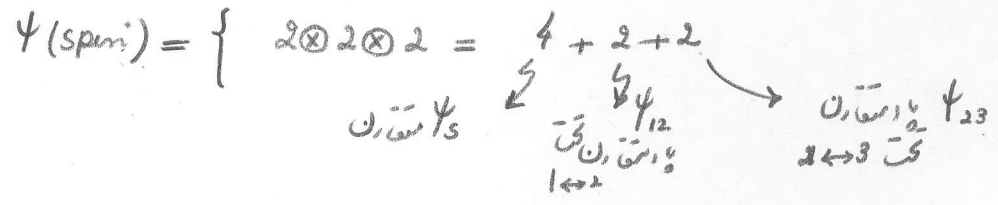 ψ(spin) = { 2⊗2⊗2 = 4 + 2 + 2
متقارن ψ_S
ψ_12
پادمتقارن تحت
1↔2
پادمتقارن ψ_23
تحت 2↔3